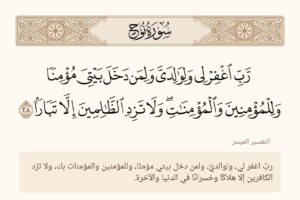 سُورَةُ نُوحٍ
رَّبِّ ٱغۡفِرۡ لِي وَلِوَٰلِدَيَّ وَلِمَن دَخَلَ بَيۡتِيَ مُؤۡمِنٗا
وَلِلۡمُؤۡمِنِينَ وَٱلۡمُؤۡمِنَٰتِۖ وَلَا تَزِدِ ٱلظَّٰلِمِينَ إِلَّا تَبَارَۢا ٢٨
التفسير الميسر
ربِّ اغفر لي، ولوالديَّ، ولمن دخل بيتي مؤمنًا، وللمؤمنين والمؤمنات بك، ولا تزد
الكافرين إلا هلاكًا وخسرانًا في الدنيا والآخرة.